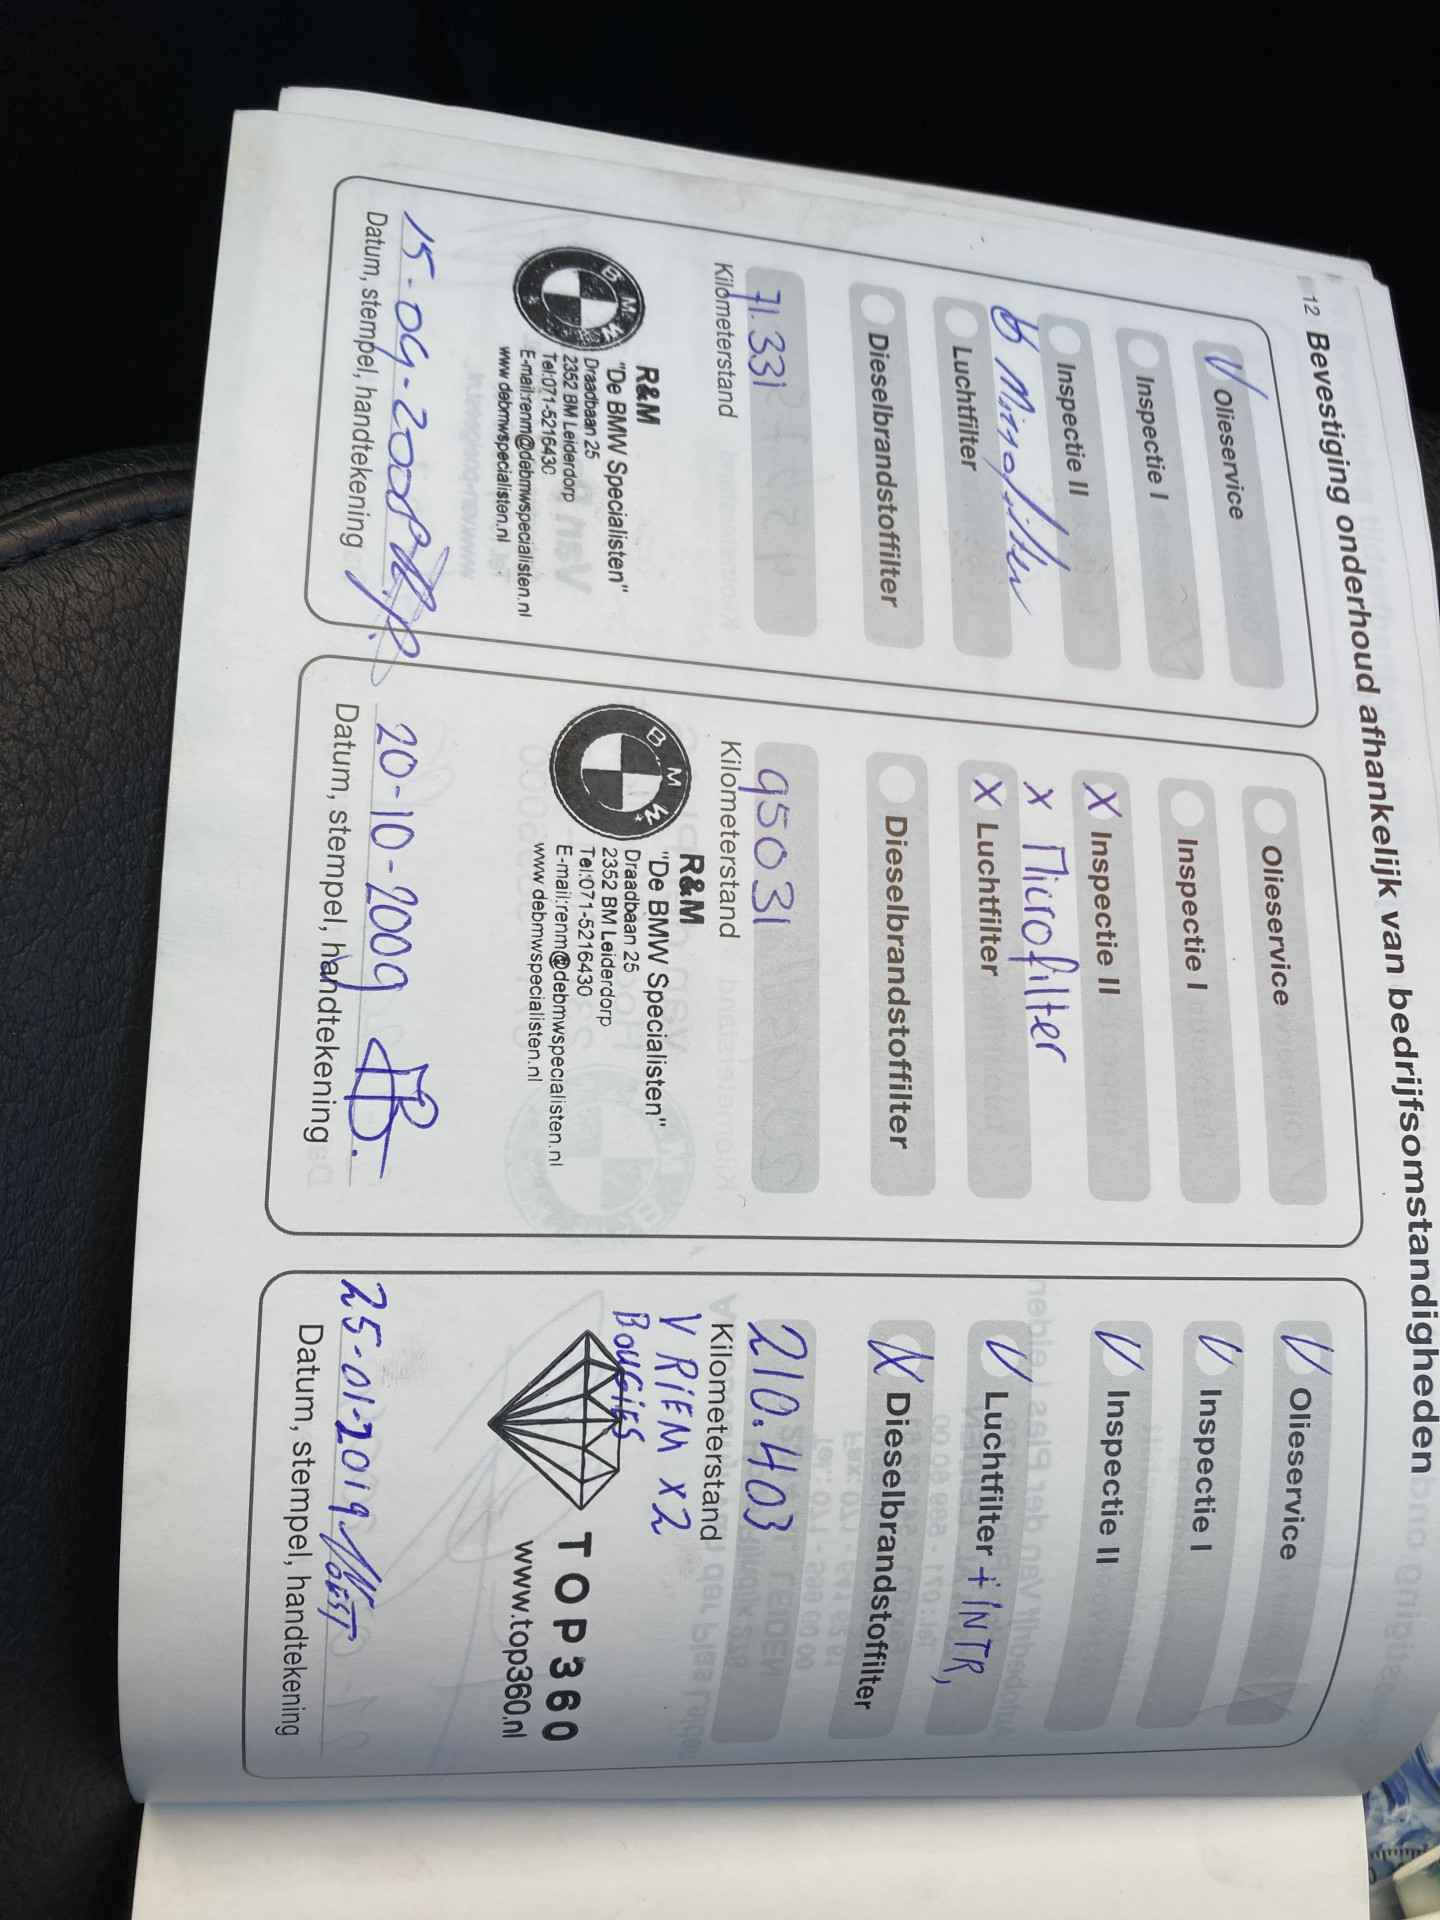 12 Bevestiging onderhoud afhankelijk van bedrijfsomstandigheden
V Olieservice
Inspectie I
Inspectie II
Microfilter
Luchtfilter
Dieselbrandstoffilter
71.331
Kilometerstand
R&M
"De BMW Specialisten"
Draadbaan 25
2352 BM Leiderdorp
Tel:071-5216430
E-mail:renm@debmwspecialisten.nl
www.debmwspecialisten.nl
BMW
15-09-2008
Datum, stempel, handtekening
Olieservice
Inspectie I
X Inspectie II
x Microfilter
X Luchtfilter
Dieselbrandstoffilter
95031
Kilometerstand
R&M
"De BMW Specialisten"
Draadbaan 25
2352 BM Leiderdorp
Tel:071-5216430
E-mail:renm@debmwspecialisten.nl
www.debmwspecialisten.nl
BMW
20-10-2009
Datum, stempel, handtekening
V Olieservice
V Inspectie I
V Inspectie II
V Luchtfilter + INTR,
X Dieselbrandstoffilter
210.403
Kilometerstand
V RiEM x2
BougiES
TOP360
www.top360.nl
25-01-2019
Datum, stempel, handtekening